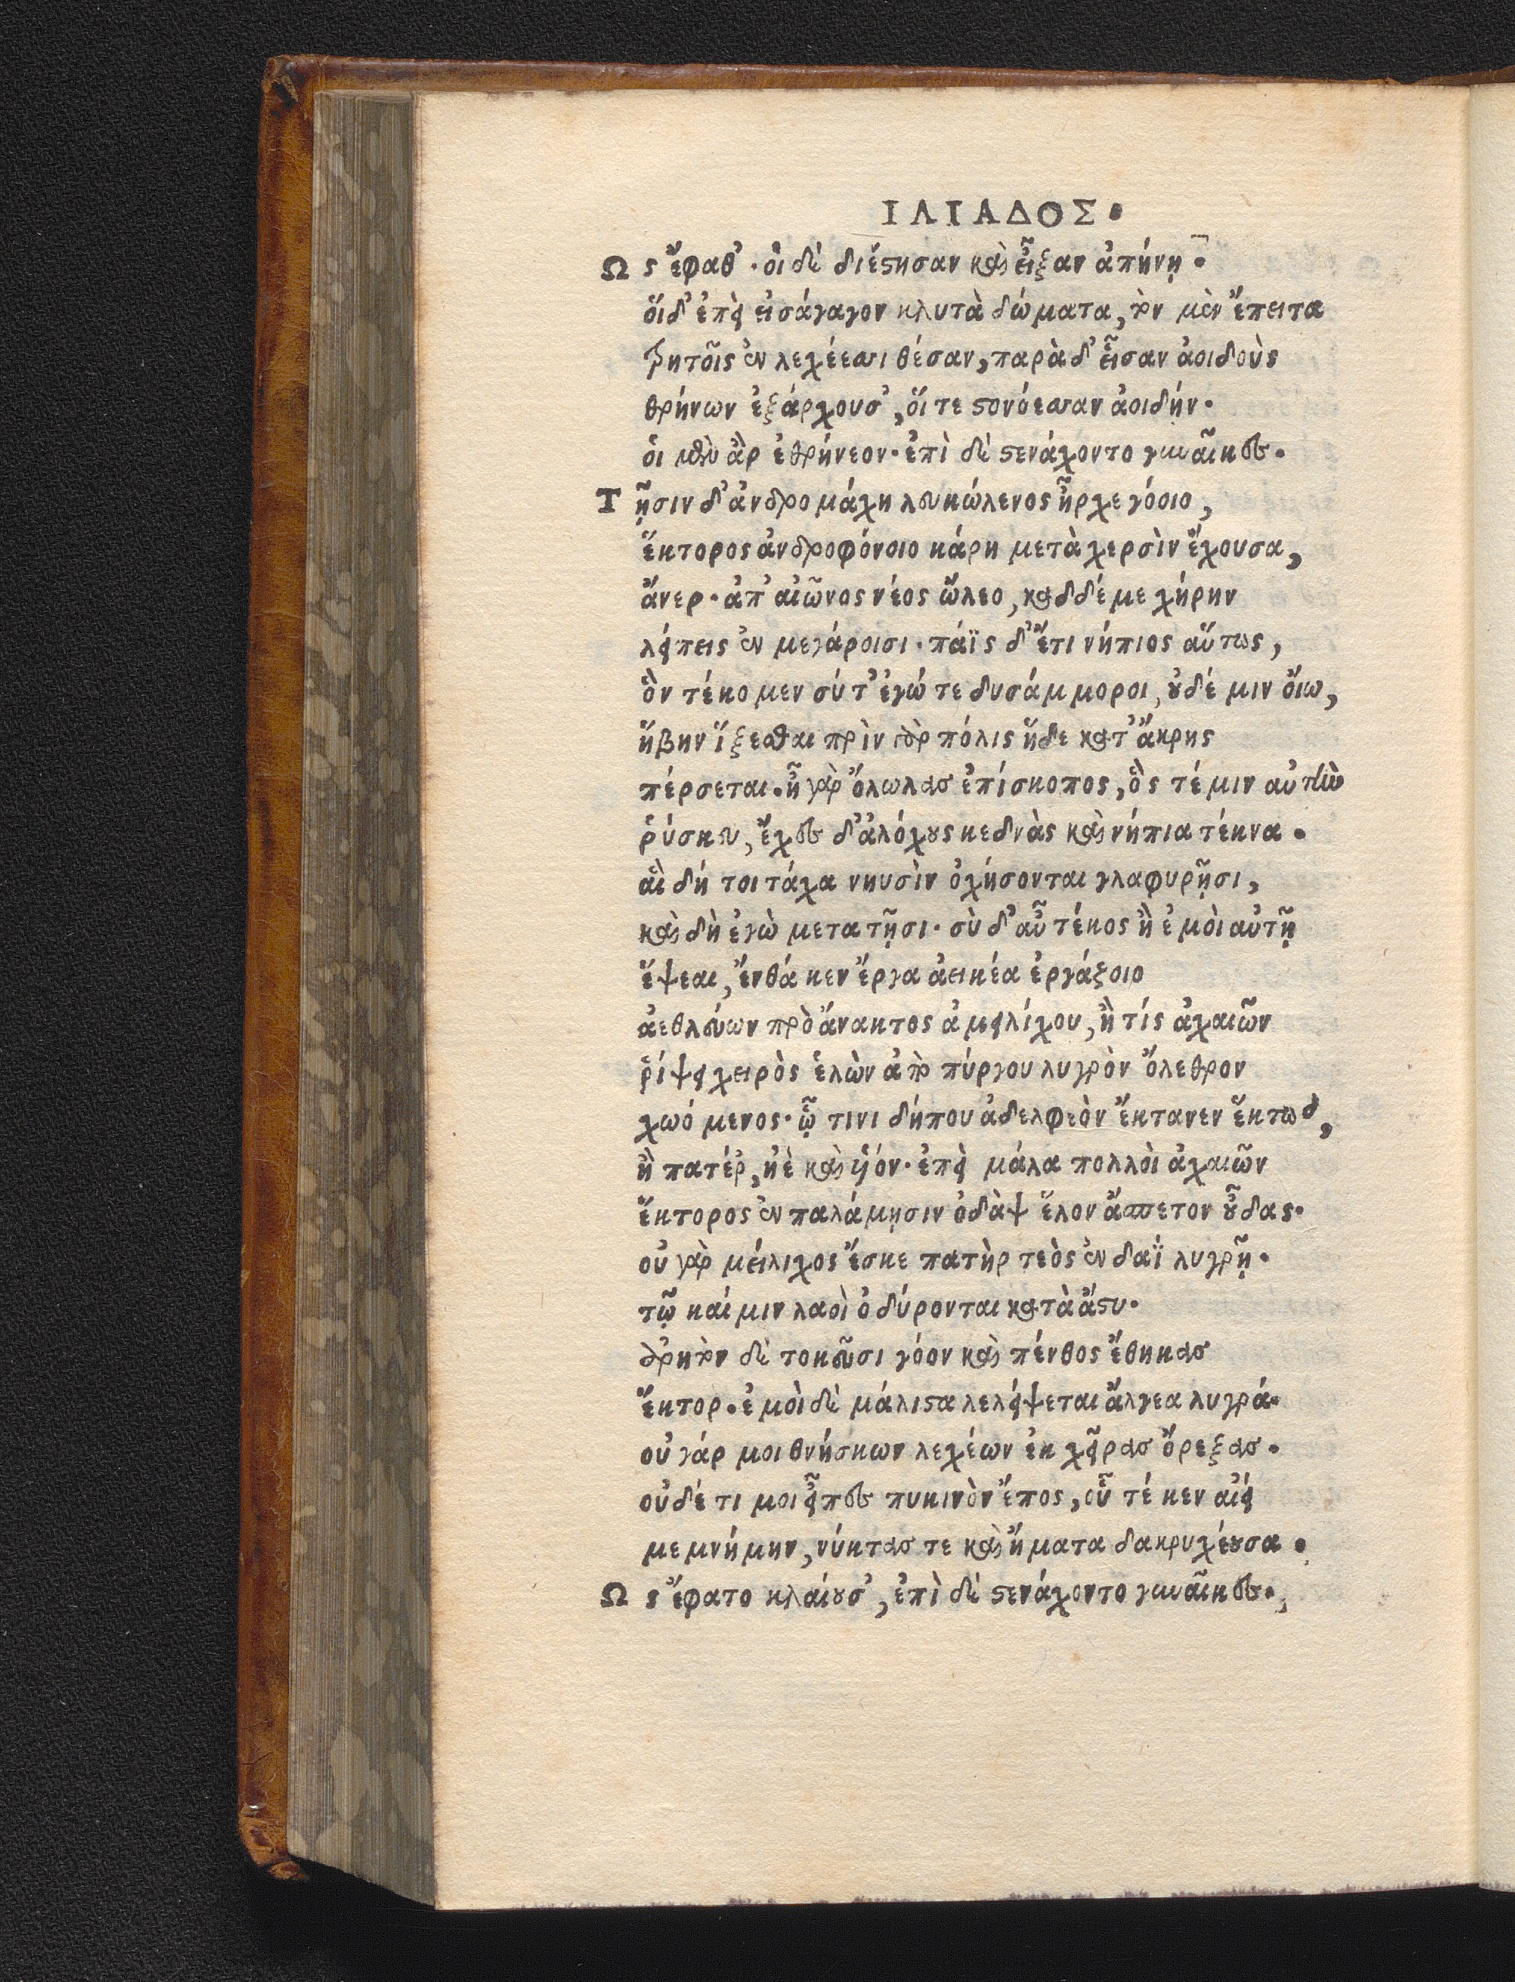 ΙΛΙΑΔΟΣ.
Ως ἔφαθ'. οἱ δὲ διέστησαν καὶ εἶξαν ἀπήνῃ.
οἵ δ' ἐπεὶ εἰσάγαγον κλυτὰ δώματα, τὸν μὲν ἔπειτα
τρητοῖς ἐν λεχέεσσι θέσαν, παρὰ δ' εἷσαν ἀοιδοὺς
θρήνων ἐξάρχουσ', οἵ τε στονόεσσαν ἀοιδήν.
οἱ μὲν ἂρ ἐθρήνεον. ἐπὶ δὲ στενάχοντο γυναῖκες.
Τῇσιν δ' ἀνδρομάχη λευκώλενος ἦρχε γόοιο,
ἕκτορος ἀνδροφόνοιο κάρη μετὰ χερσὶν ἔχουσα,
ἄνερ. ἀπ' αἰῶνος νέος ὤλεο, καδδέ με χήρην
λείπεις ἐν μεγάροισι. πάϊς δ' ἔτι νήπιος αὕτως,
ὃν τέκομεν σύ τ' ἐγώ τε δυσάμμοροι, οὐδέ μιν ὀΐω,
ἥβην ἵξεσθαι πρὶν γὰρ πόλις ἥδε κατ' ἄκρης
πέρσεται. ἦ γὰρ ὄλωλας ἐπίσκοπος, ὅς τέ μιν αὐτὴν
ῥύσκευ, ἔχες δ' ἀλόχους κεδνὰς καὶ νήπια τέκνα.
αἳ δή τοι τάχα νηυσὶν ὀχήσονται γλαφυρῇσι,
καὶ δὴ ἐγὼ μετα τῇσι. σὺ δ' αὖ τέκος ἢ ἐμοὶ αὐτῇ
ἕψεαι, ἔνθά κεν ἔργα ἀεικέα ἐργάζοιο
ἀεθλεύων πρὸ ἄνακτος ἀμειλίχου, ἢ τίς ἀχαιῶν
ῥίψει χειρὸς ἑλὼν ἀπὸ πύργου λυγρὸν ὄλεθρον
χωόμενος. ᾧ τινι δήπου ἀδελφεὸν ἔκτανεν ἕκτωρ,
ἢ πατέρ', ἠὲ καὶ υἱόν. ἐπεὶ μάλα πολλοὶ ἀχαιῶν
ἕκτορος ἐν παλάμῃσιν ὀδὰξ ἕλον ἄσπετον οὖδας.
οὐ γὰρ μείλιχος ἔσκε πατὴρ τεὸς ἐν δαῒ λυγρῇ.
τῷ καί μιν λαοὶ ὀδύρονται κατὰ ἄστυ.
ἀρητὸν δὲ τοκεῦσι γόον καὶ πένθος ἔθηκας
ἕκτορ. ἐμοὶ δὲ μάλιστα λελείψεται ἄλγεα λυγρά.
οὐ γάρ μοι θνήσκων λεχέων ἐκ χεῖρας ὄρεξας.
οὐδέ τι μοι εἶπες πυκινὸν ἔπος, οὗ τέ κεν αἰεὶ
μεμνήμην, νύκτας τε καὶ ἤματα δακρυχέουσα.
Ως ἔφατο κλαίουσ', ἐπὶ δὲ στενάχοντο γυναῖκες.